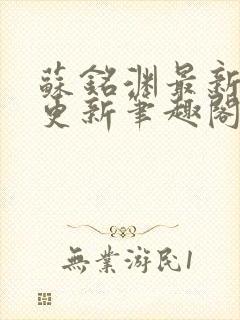 蘇銘淵最新
更新筆趣閣
無業游民1